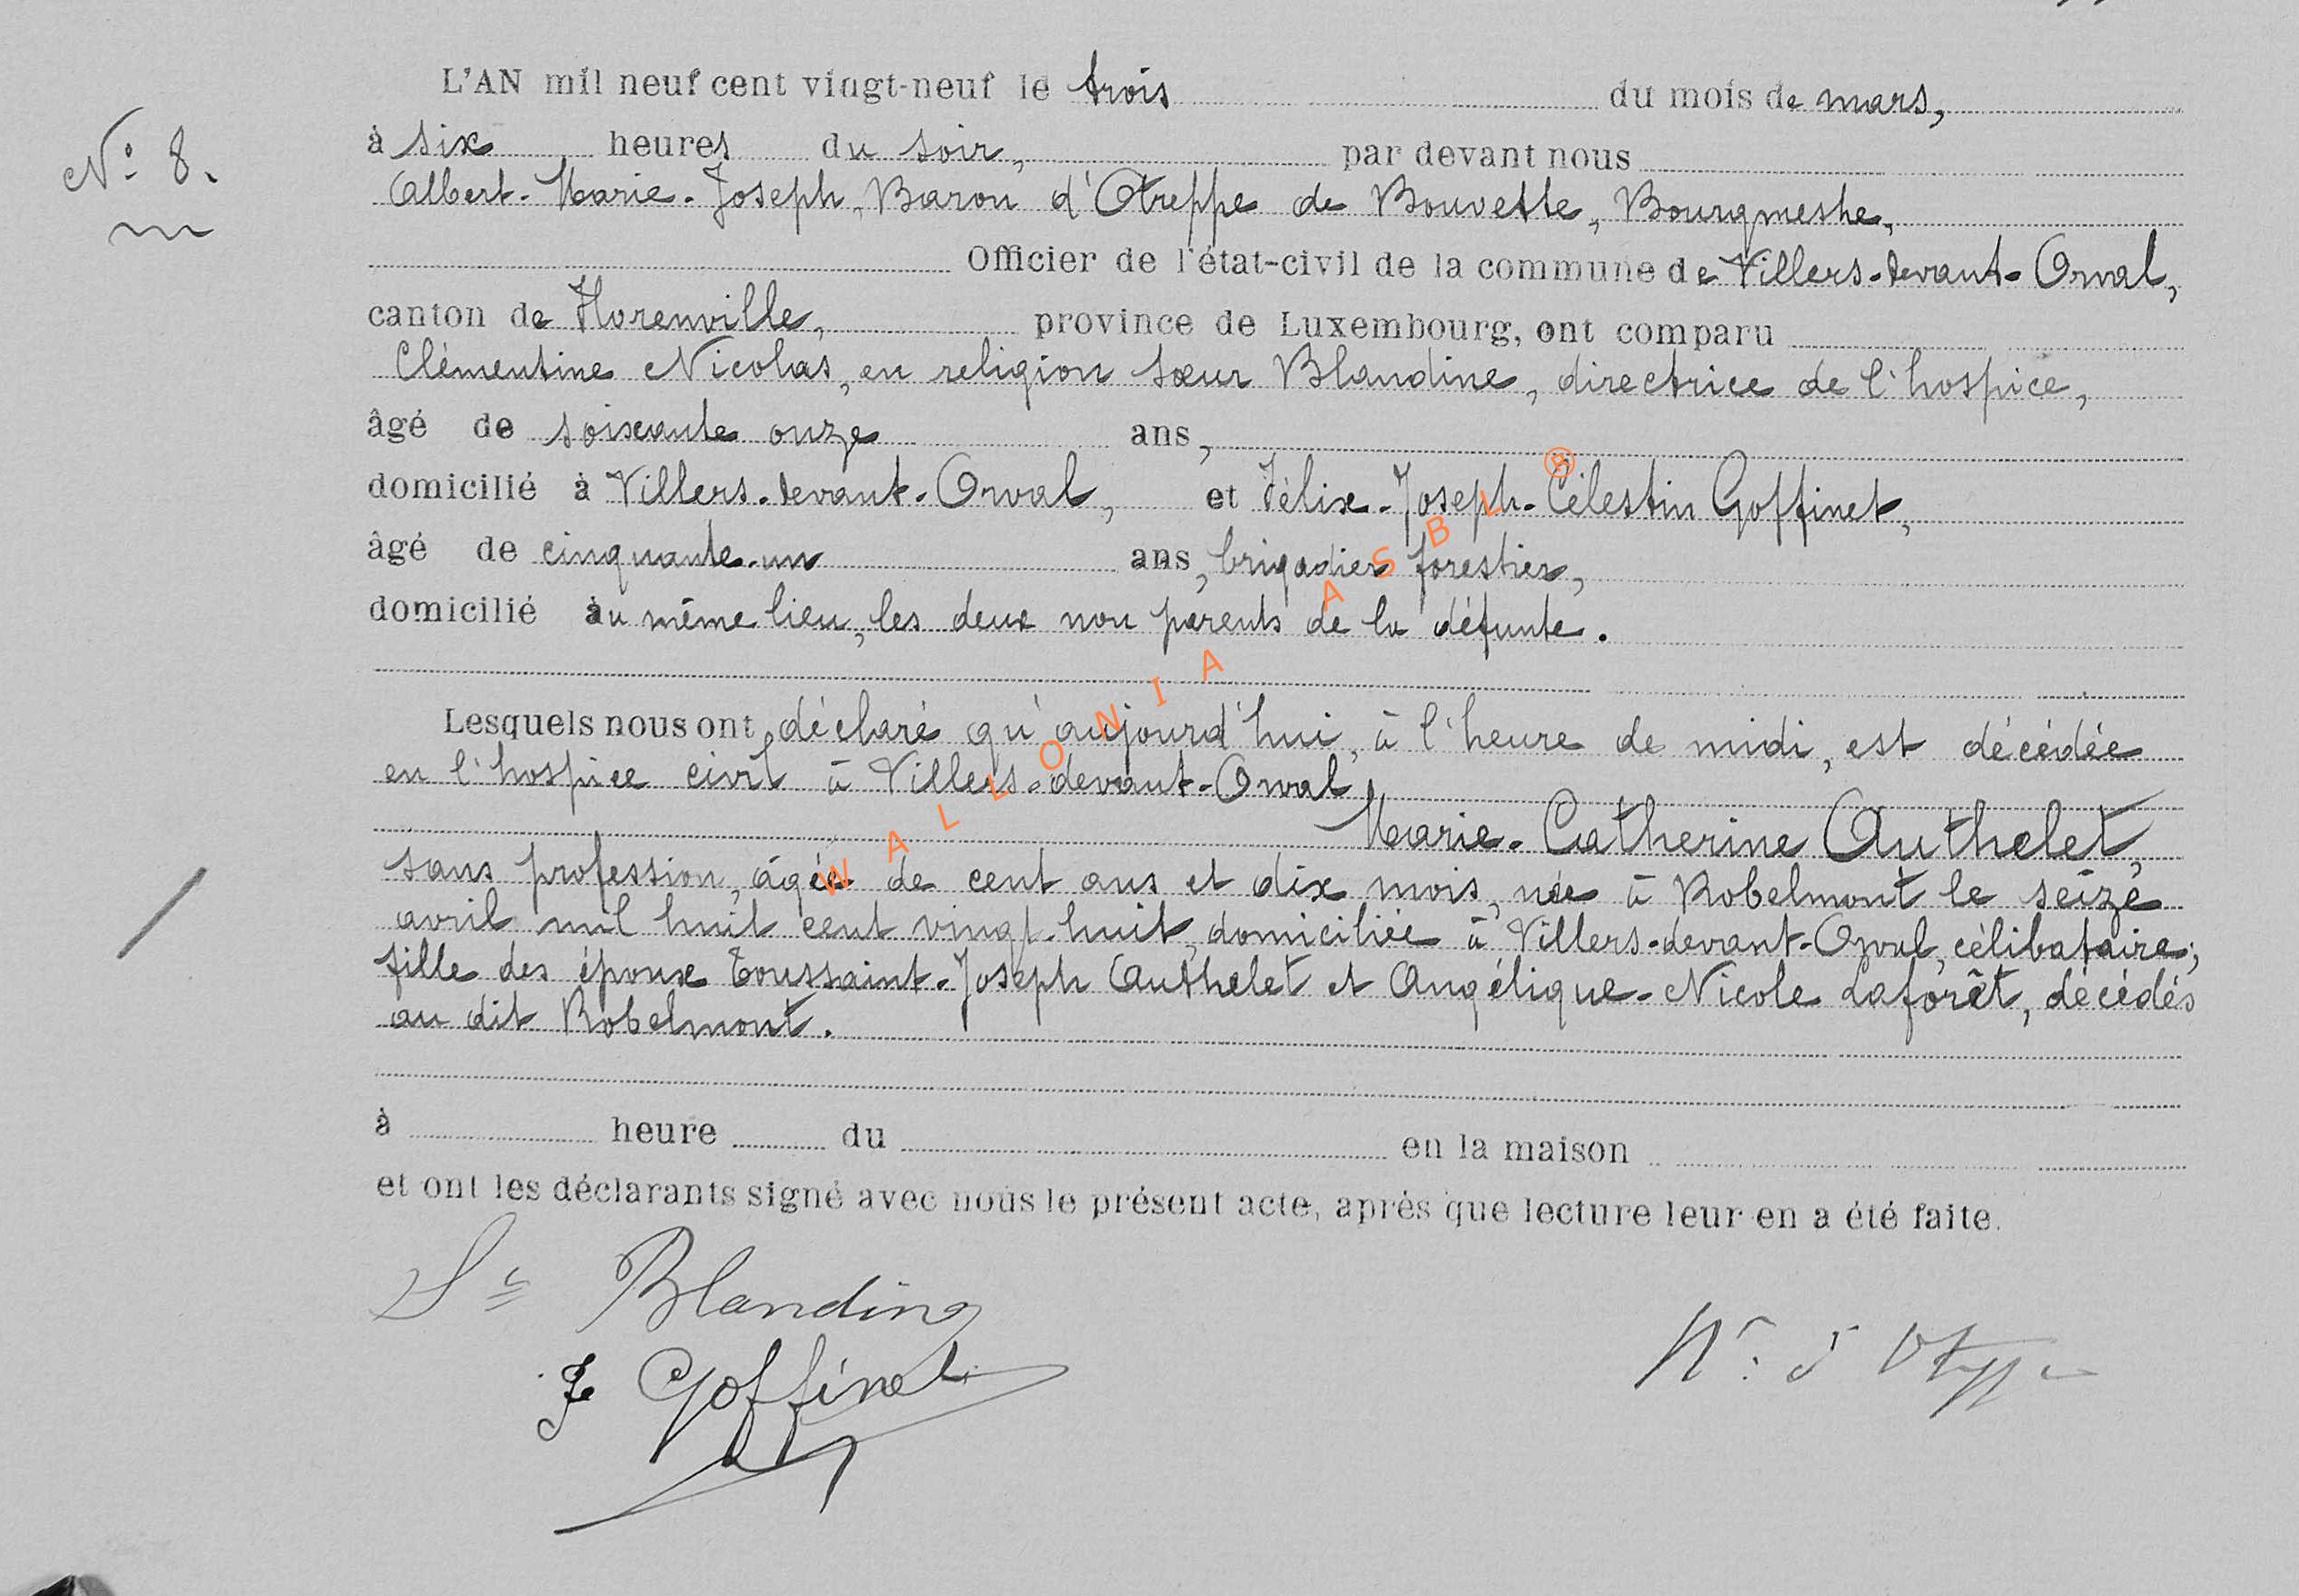 L'AN mil neuf cent vingt-neuf le trois du mois de mars,
N° 8.
à six heures du soir, par devant nous
Albert-Marie-Joseph, Baron d'Otreppe de Bouvette, Bourgmestre,
Officier de l'état-civil de la commune de Villers-devant-Orval,
canton de Florenville, province de Luxembourg, ont comparu
Clémentine Nicolas, en religion sœur Blandine, directrice de l'hospice,
âgé de soixante onze ans,
domicilié à Villers-devant-Orval, et Félix-Joseph-Célestin Goffinet,
âgé de cinquante-un ans, brigadier forestier,
domicilié au même lieu, les deux non parents de la défunte.
Lesquels nous ont déclaré qu'aujourd'hui, à l'heure de midi, est décédée
en l'hospice civil à Villers-devant-Orval,
Marie-Catherine Authelet,
sans profession, âgée de cent ans et dix mois, née à Robelmont le seize
avril mil huit cent vingt-huit, domiciliée à Villers-devant-Orval, célibataire;
fille des époux Toussaint-Joseph Authelet et Angélique-Nicole Laforêt, décédés
au dit Robelmont.
à heure du en la maison
et ont les déclarants signé avec nous le présent acte, après que lecture leur en a été faite.
Sr Blandine
F Goffinet
d'Otreppe
WALLONIA ASBL ®